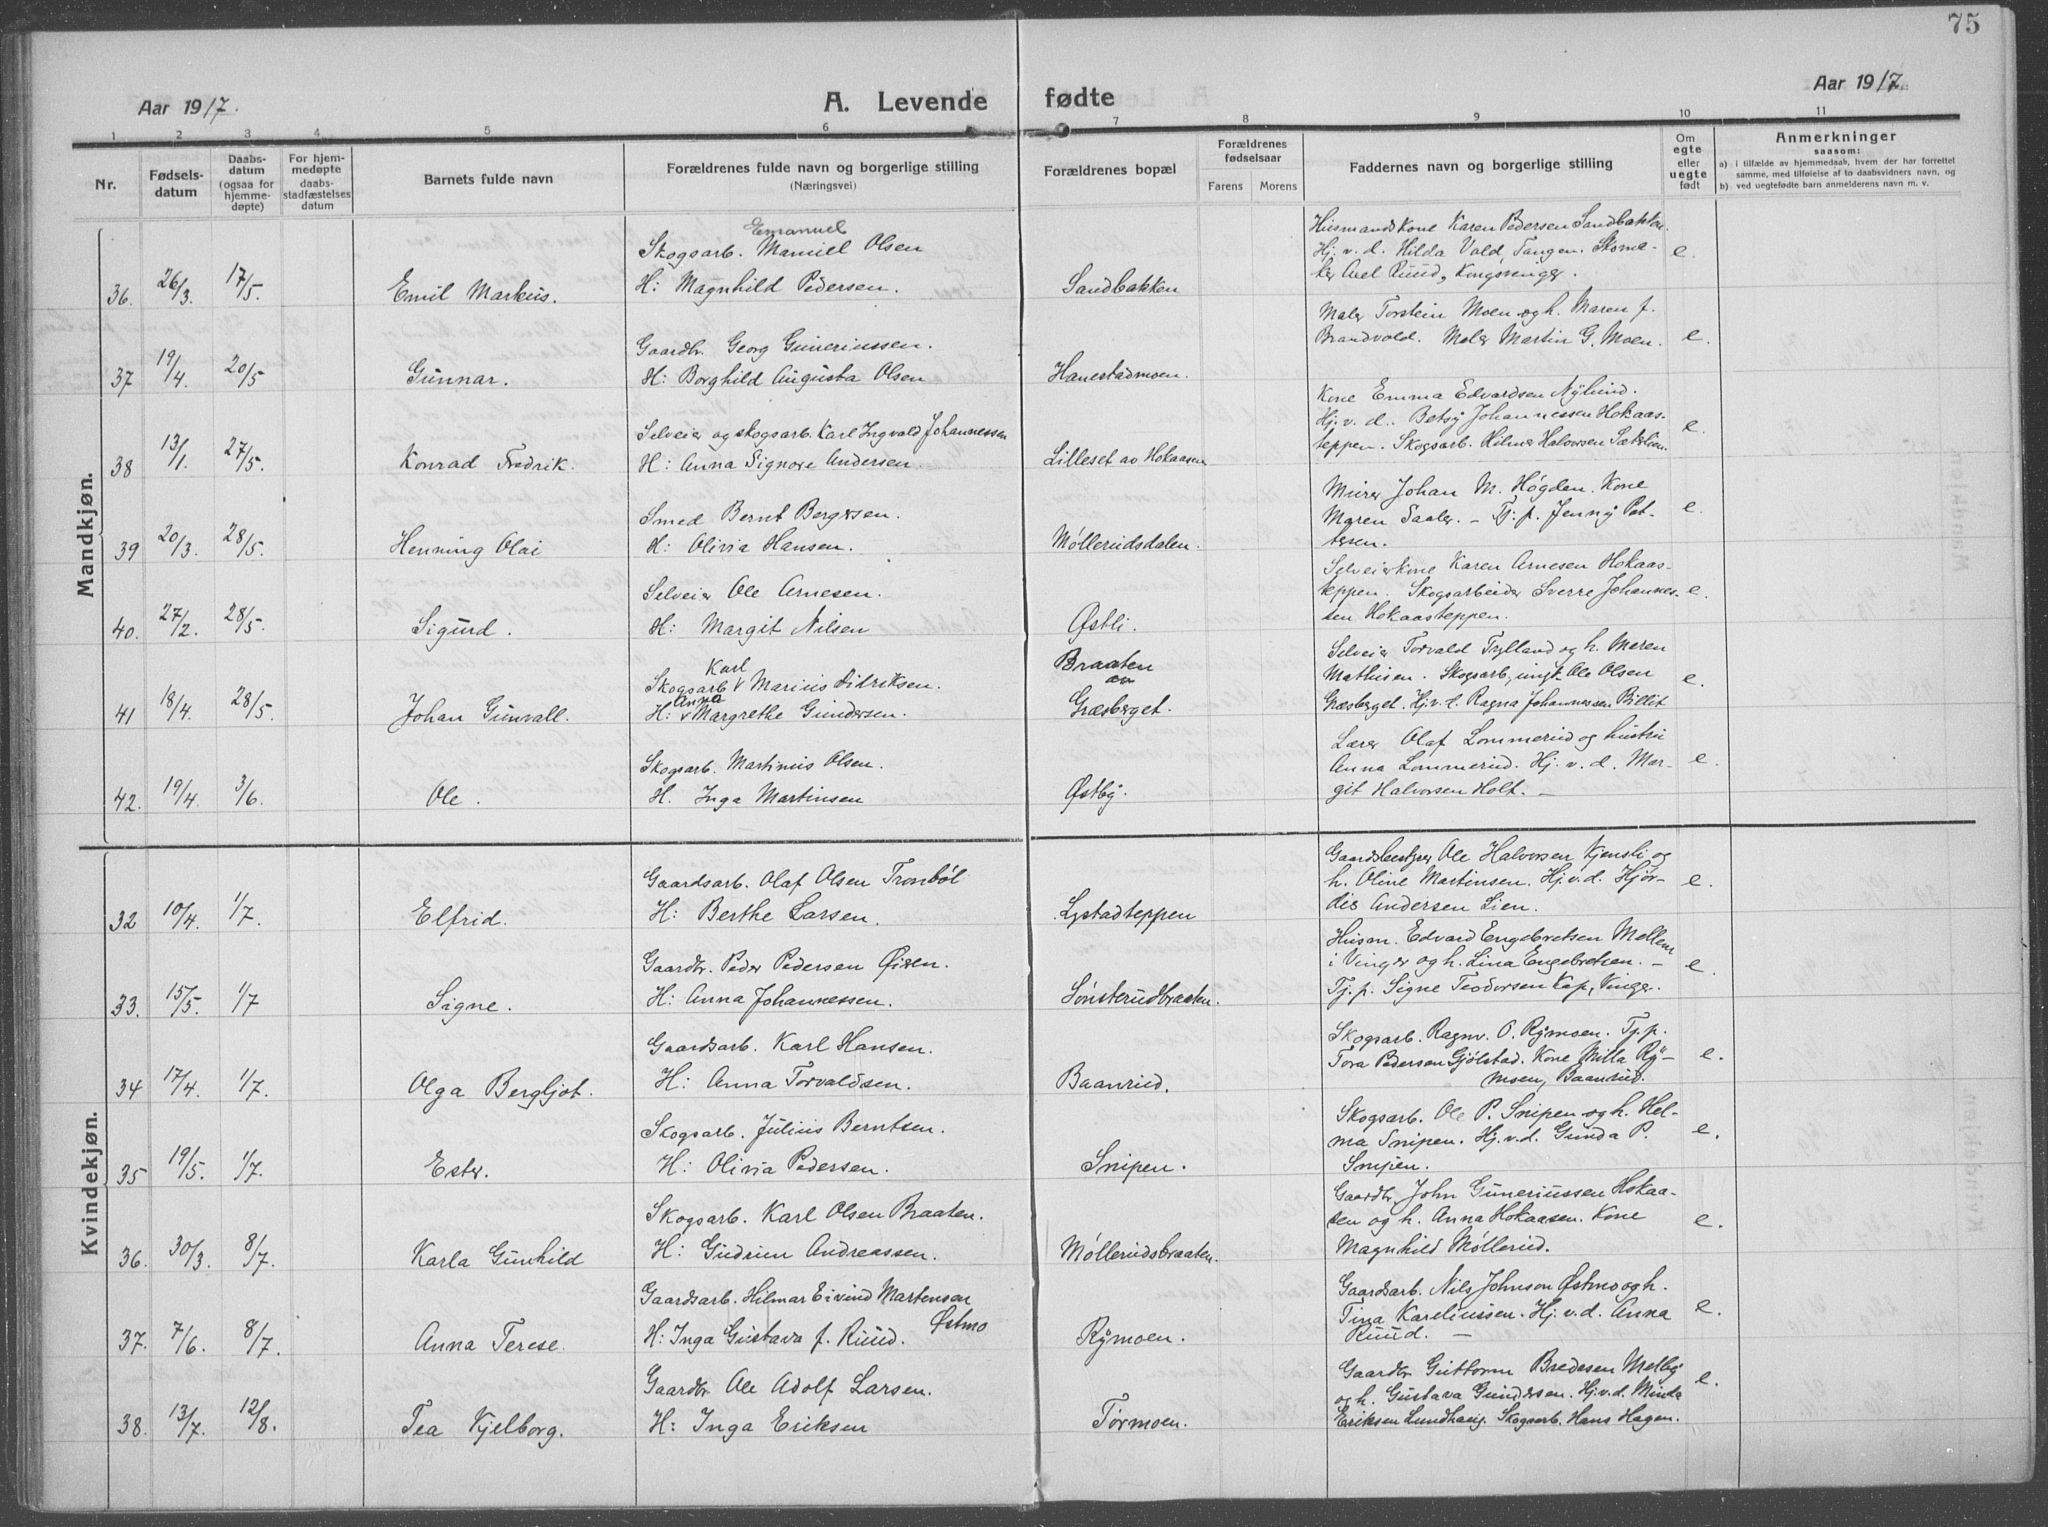 75
Aar 1917. A. Levende fødte Aar 1917.
1 2 3 4 5 6 7 8 9 10 11
Nr. Fødsels-datum Daabs-datum (ogsaa for hjemme-døpte) For hjem-medøpte daabs-stadfæstelses datum Barnets fulde navn Forældrenes fulde navn og borgerlige stilling (Næringsvei) Forældrenes bopæl Forældrenes fødselsaar Farens Morens Faddernes navn og borgerlige stilling Om egte eller uegte født Anmerkninger saasom:
a) i tilfælde av hjemmedaab, hvem der har forrettet samme, med tilføielse af to daabsvidners navn, og
b) ved uegtefødte barn anmelderens navn m. v.
Mandkjøn.
Emanuel
Skogsarb. Manuel Olsen
36. 26/3. 17/5. Emil Markus. H: Magnhild Pedersen. Sandbakken
Husmandskone Karen Pedersen Sandbakken.
Hj. v. d. Hilda Vold, Tangen. Skoma-
ker Axel Ruud, Kongsvinger. e.
Gaardbr. Georg Guneriussen.
37 19/4 20/5 Gunnar. H: Borghild Augusta Olsen Hanestadmoen.
Maler Torstein Moen og h. Maren f.
Brandvold. Maler Martin G. Moen. e.
Selveier og skogsarb. Karl Ingvald Johannessen
38 13/1. 27/5. Konrad Fredrik. H: Anna Signore Andersen. Lilleset av Hokaasen
Kone Emma Edvardsen Nylund.
Hj. v. d. Betsy Johannessen Hokaas-
teppen. Skogsarb. Hilmer Halvorsen Sæterlien. e.
Smed Bernt Bergersen.
39 20/3. 28/5. Henning Olai H: Olivia Hansen. Møllerudsdalen.
Murer Johan M. Høgden. Kone
Maren Saaler. - Tj. p. Jenny Pet-
tersen. e.
Selveier Ole Arnesen.
40. 27/2. 28/5. Sigurd. H: Margit Nilsen Østli.
Selveierkone Karen Arnesen Hokaas-
teppen. Skogsarbeider Sverre Johannes-
sen Hokaasteppen. e.
Karl
Skogsarb. V Marius Didriksen.
Anna
41 18/4. 28/5. Johan Gunvall. H: v Margrethe Gundersen. Braaten
av
Græsberget.
Selveier Torvald Tylland og h. Maren
Mathisen. Skogsarb, ungk. Ole Olsen
Græsberget. Hj. v. d. Ragna Johannessen Billit e.
Skogsarb. Martinus Olsen.
42. 19/4. 3/6. Ole. H. Inga Martinsen Østby.
Lærer Olaf Lommerud og hustru
Anna Lommerud. Hj. v. d. Mar-
git Halvorsen Holt. - e.
Kvindekjøn.
Gaardsarb. Olaf Olsen Tronbøl
32 10/4. 1/7. Elfrid. H: Berthe Larsen. Lystadteppen
Gaardsbestyrer Ole Halvorsen Kjensli og
h. Oline Martinsen. Hj. v. d. Hjør-
dis Andersen Lien. e.
Gaardbr. Peder Pedersen Øieren.
33. 15/5. 1/7 Signe. H: Anna Johannessen. Sønsterudbraaten.
Husm. Edvard Engebretsen Mellem
i Vinger og h. Lina Engebretsen. -
Tj. p. Signe Teodorsen Kap, Vinger. e.
Gaardsarb. Karl Hansen.
34 17/4. 1/7. Olga Bergljot. H: Anna Torvaldsen. Baanrud.
Skogsarb. Ragnv. O. Rymoen. Tj. p.
Tora Pedersen Gjølstad. Kone Milla Ry-
moen, Baanrud. e.
Skogsarb. Julius Berntsen.
35 19/5. 1/7. Ester. H: Olivia Pedersen. Snipen.
Skogsarb. Ole P. Snipen og h. Hel-
ma Snipen. Hj. v. d. Gunda P.
Snipen. e.
Skogsarb. Karl Olsen Braaten.
36. 30/3. 8/7. Karla Gunhild H: Gudrun Andreassen. Møllerudsbraaten.
Gaardbr. John Guneriussen Hokaa-
sen og h. Anna Hokaasen. Kone
Magnhild Møllerud. e.
Gaardsarb. Hilmar Eivind Martensen
Østmo
37. 7/6. 8/7. Anna Terese. H: Inga Gustava f. Ruud. Rymoen.
Gaardsarb. Nils Johnson Østmo og h.
Tina Kareliussen. Hj. v. d. Anna
Ruud. - e.
Gaardbr Ole Adolf Larsen.
38. 13/7. 12/8. Tea Kjelborg. H: Inga Eriksen Tørmoen.
Gaardbr Guttorm Bredesen Melby
og h. Gustava Gundersen. Hj. v. d. Minda
Eriksen Lundhaug. Skogsarb. Hans Hagen. e.